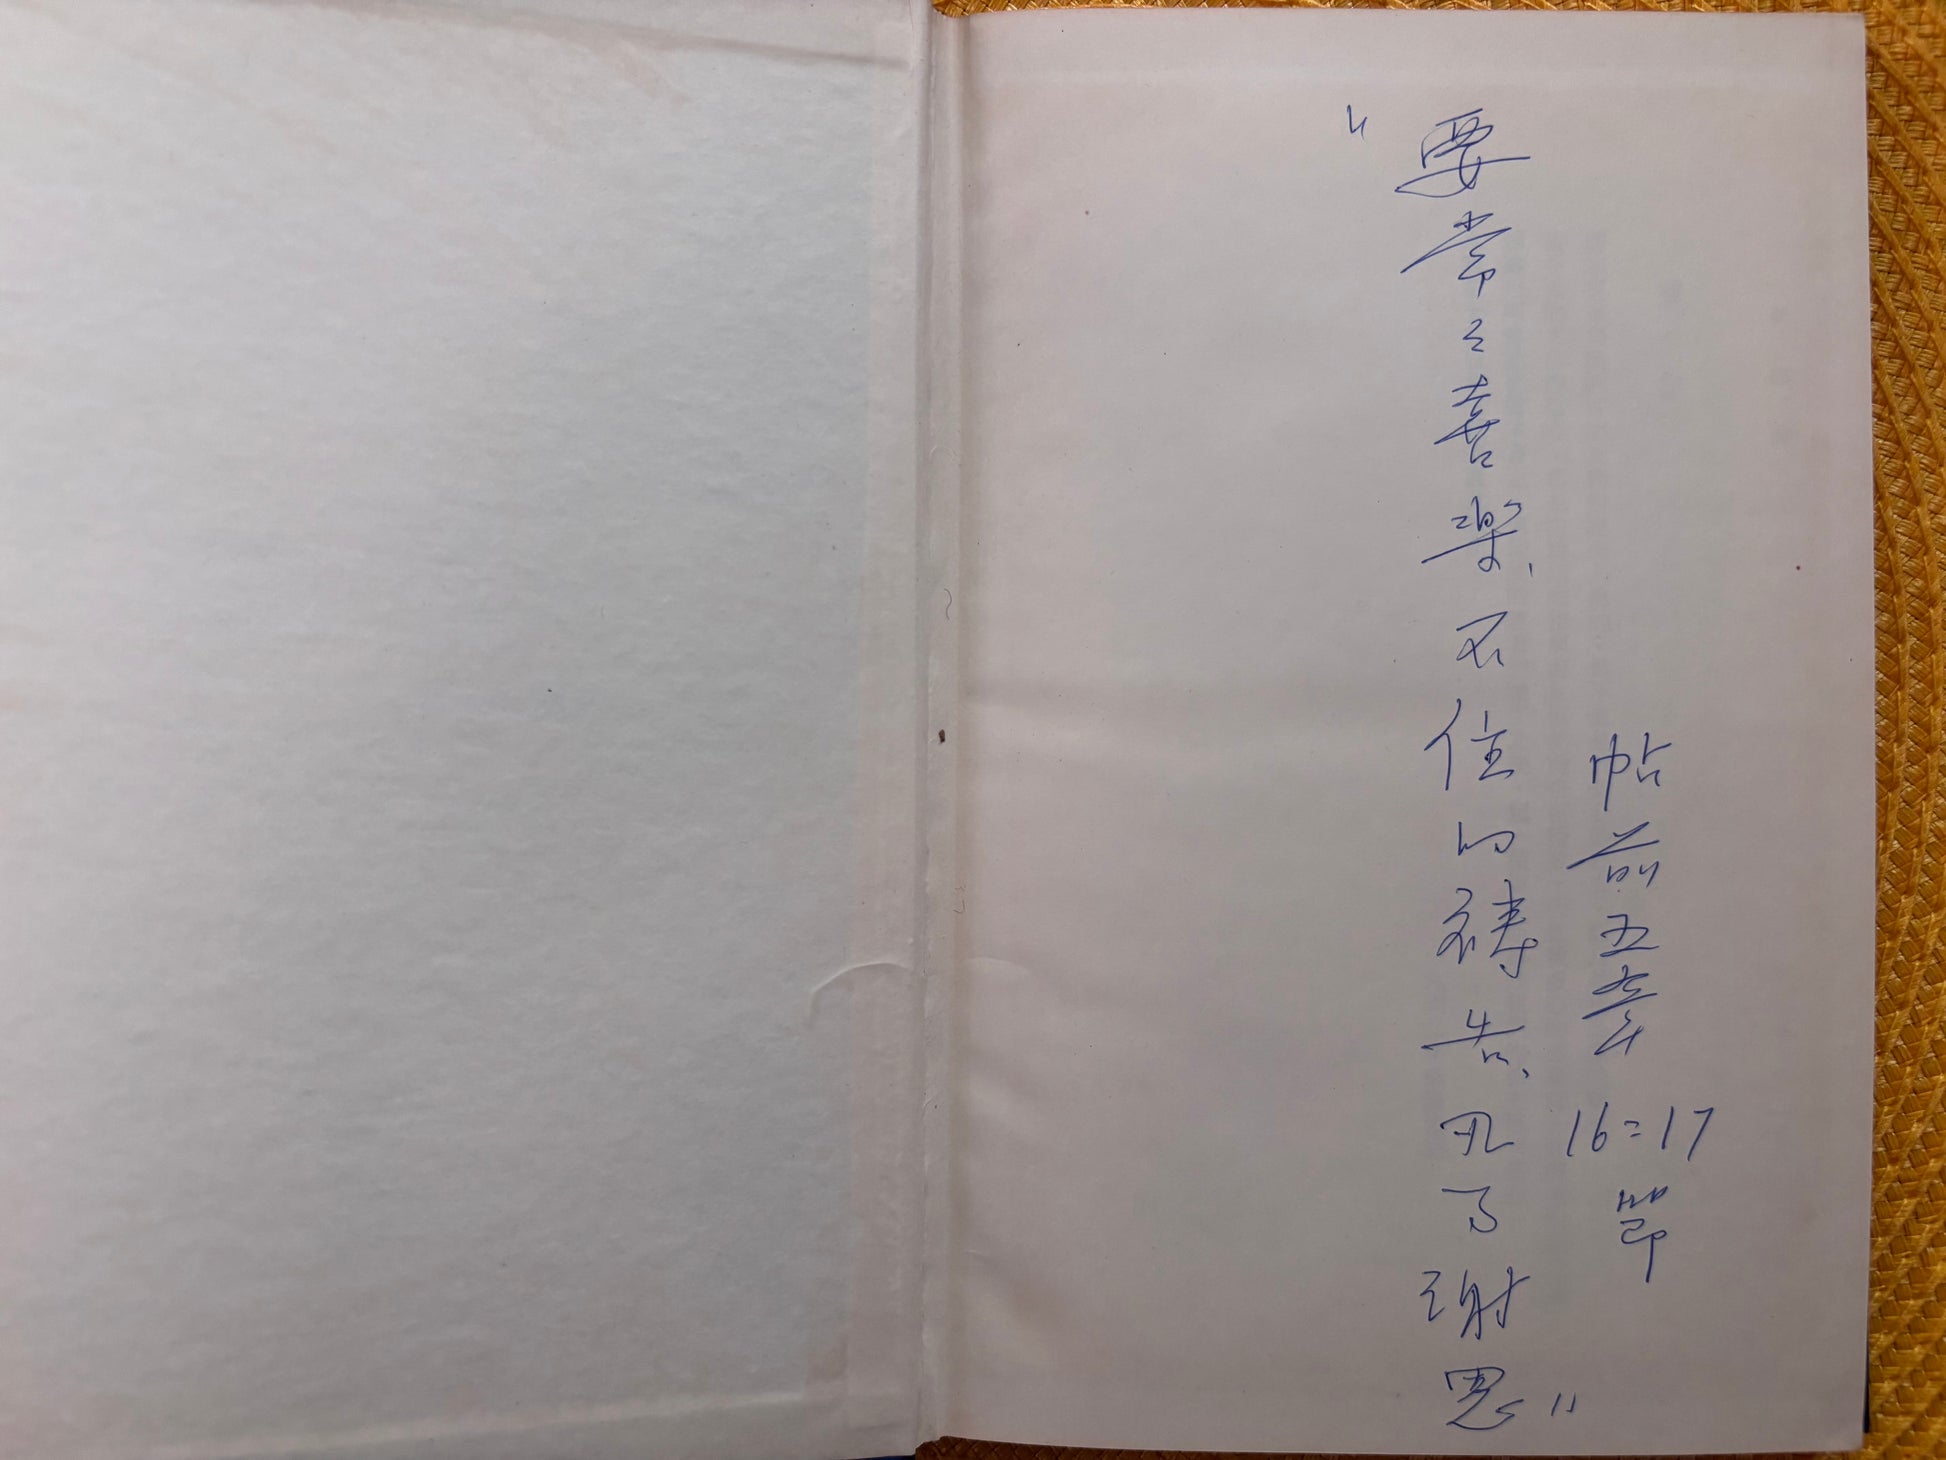 "要常々喜楽、不住的祷告、凡事謝恩"
帖前五章16=17節